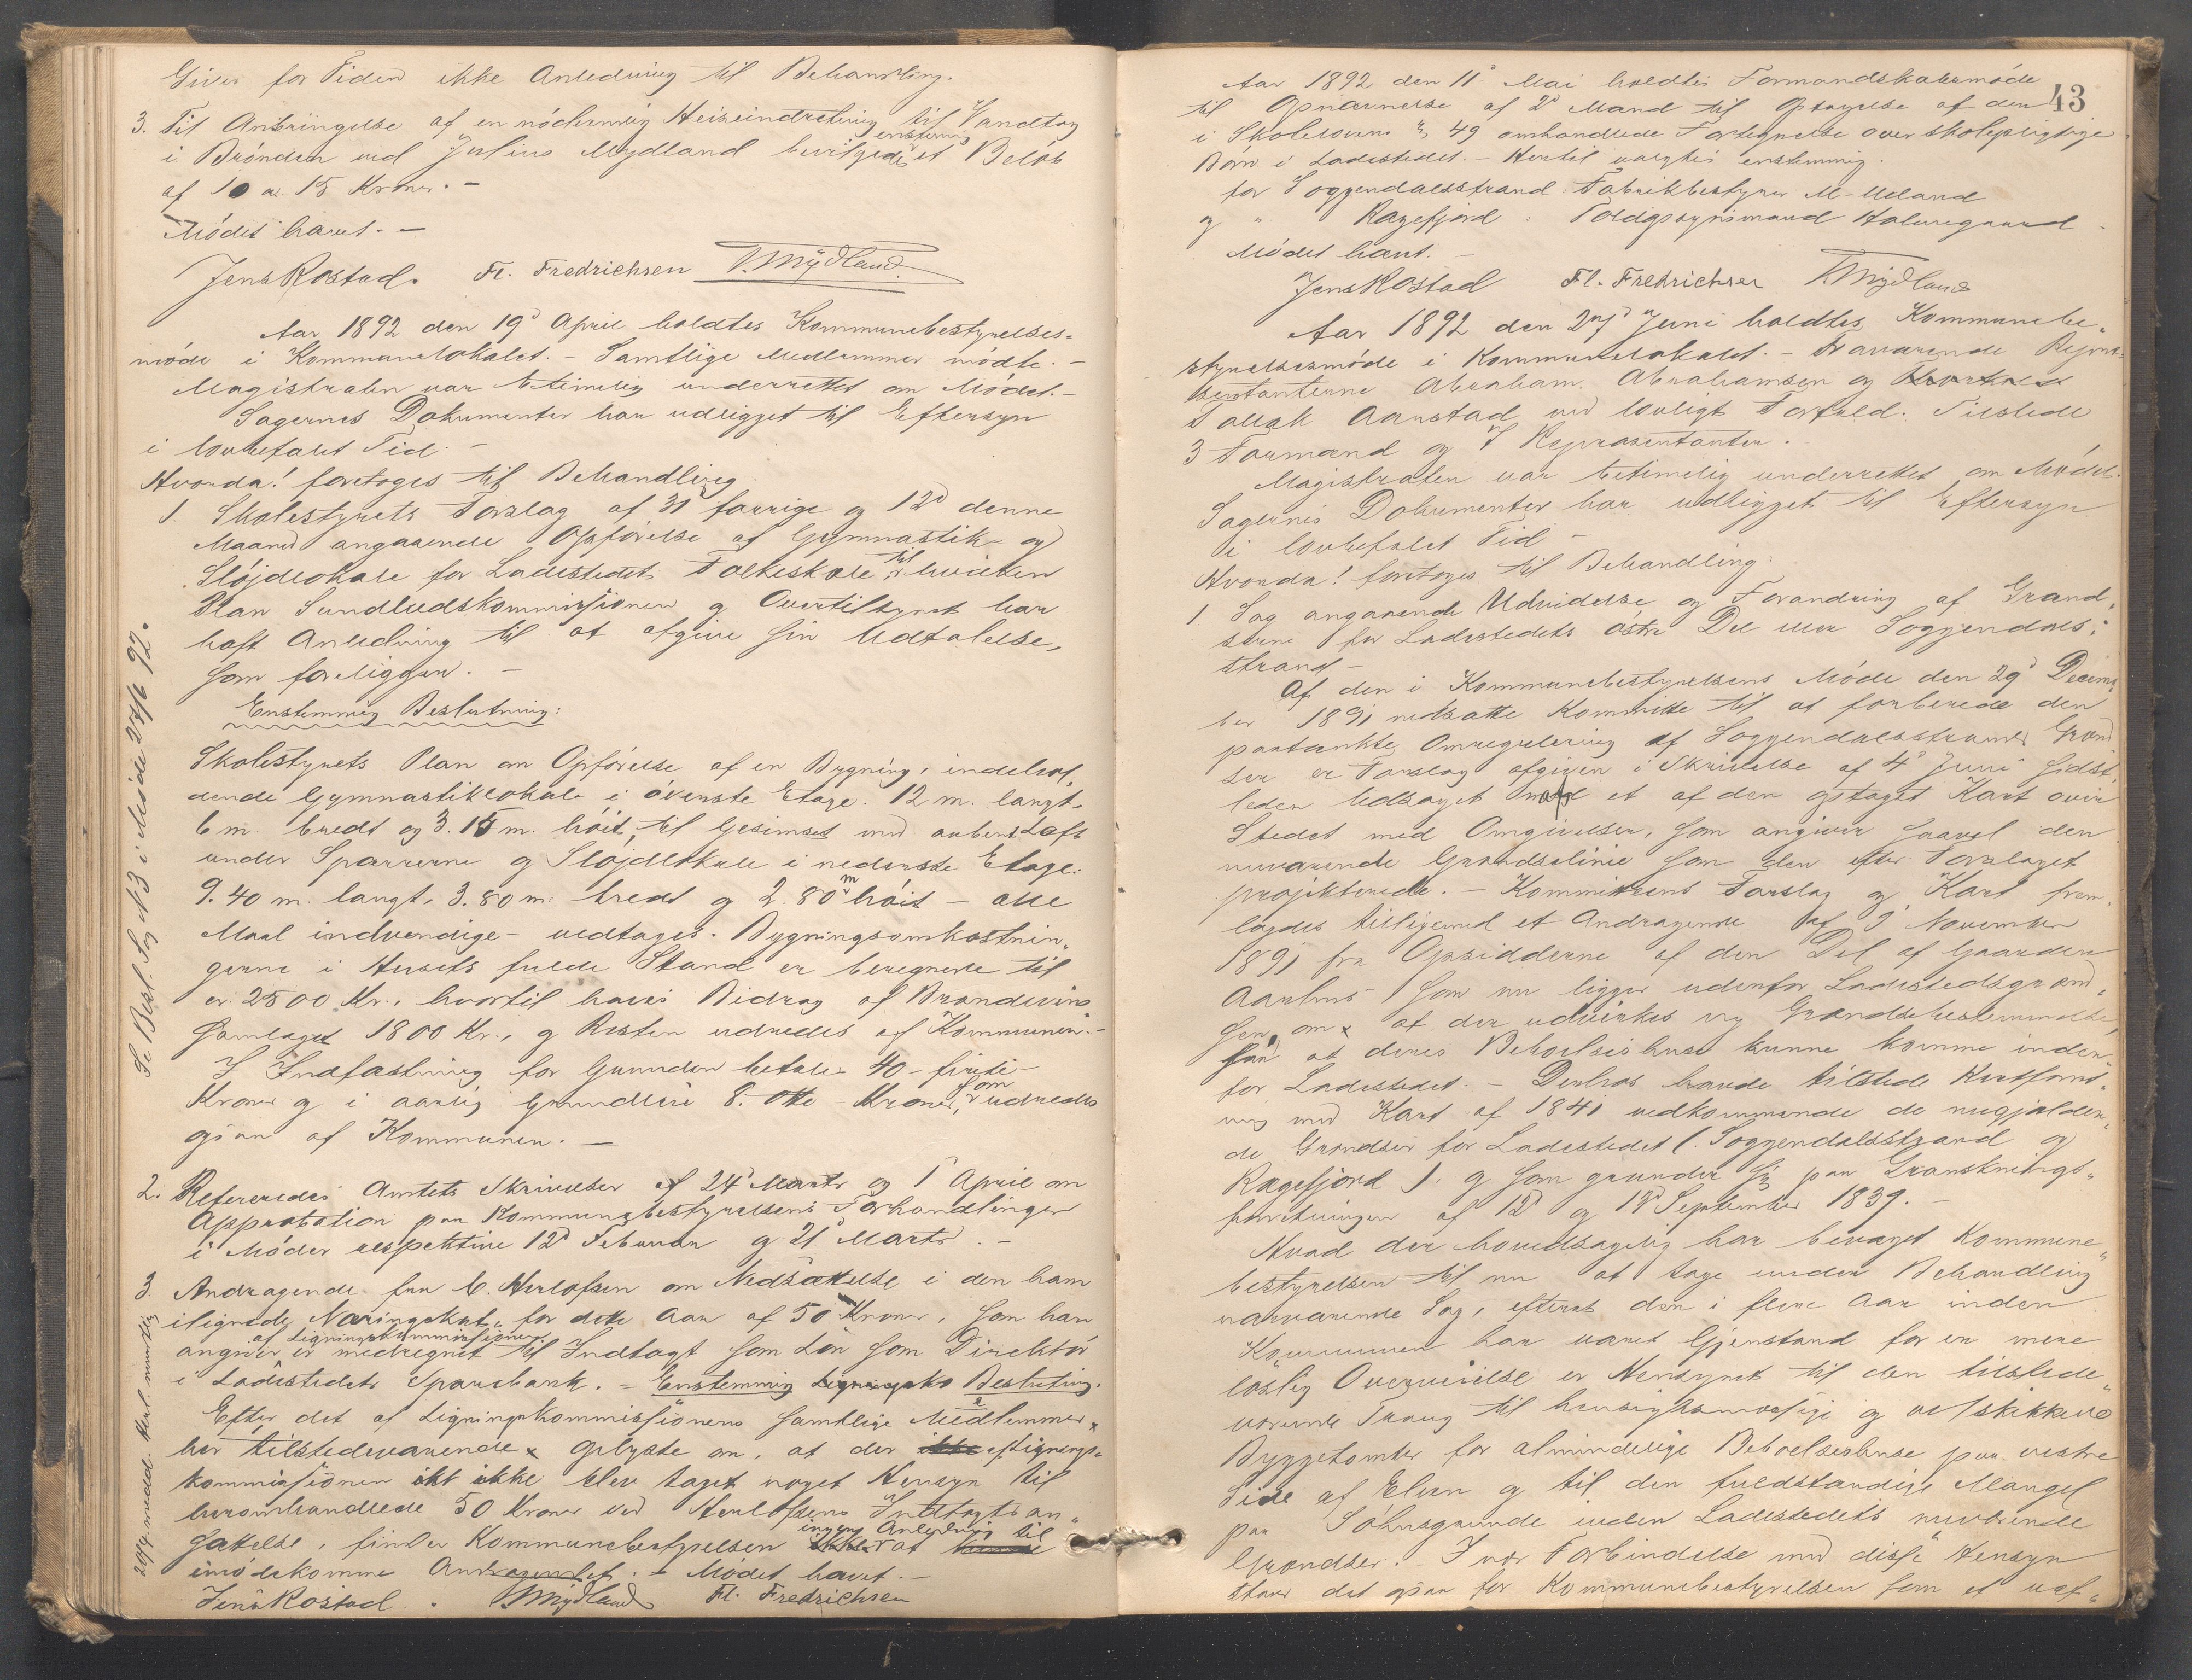 Giver for Tiden ikke Anledning til Behandling.
3. Til Anbringelse af en nødtømmelig Heiseindretning til Vandtag
i Brønden ved Julius Mydland bevilgedes enstemmig et Beløb
af 10 a 15 Kroner. -
Mødet hævet. -
Jens Rostad. Fr. Fredrichsen T. Mydland.
Aar 1892 den 19d April holdtes Kommunebestyrelses-
møde i Kommunelokalet. - Samtlige Medlemmer mødte. -
Magistraten var betimelig underrettet om Mødet. -
Sagernes Dokumenter har udligget til Eftersyn
i lovbefalet Tid. -
Hvorda! foretoges til Behandling
1. Skolestyrets Forslag af 31 forrige og 12d denne
Maaned angaaende Opførelse af Gymnastik- og
Sløjdlokale for Ladestedets Folkeskole, til hvilken
Plan Sundhedskommissionen og Overtilsynet har
haft Anledning til at afgive sin Udtalelse,
som foreligger. -
Enstemmig Beslutning:
Skolestyrets Plan om Opførelse af en Bygning, indehol-
dende Gymnastiklokale i øverste Etage. 12 m. langt,
6 m. bredt og 3.15 m. høit, til Gesimset med aabent Loft
under Sparrerne og Sløjdlokale i nederste Etage:
9.40 m. langt, 3.80 m. bredt og 2.80 m høit - alle
Maal indvendige - vedtages. Bygningsomkostnin-
gerne i Husets fulde Stand er beregnede til
cr. 2500 Kr., hvortil haves Bidrag af Brændevins-
samlaget 1800 Kr., og Resten udredes af Kommunen. -
I Indfæstning for Grunden betales 40 - firti -
Kroner og i aarlig Grundleie 8. otte - Kroner, som udredes
ogsaa af Kommunen. -
2. Refereredes Amtets Skrivelser af 24d Marts og 1d April om
Approbation paa Kommunebestyrelsens Forhandlinger
i Møder respektive 12d Februar og 21d Marts. -
3. Andragende fra C. Herlofsen om Nedsættelse i den ham
ilignede Næringskat for dette Aar af 50 Kroner, som han
angiver er af Ligningskommissionen medregnet til Indtægt som Løn som Direktør
i Ladestedets Sparebank. - Enstemmig Beslutning.
Efter det af Ligningskommissionens samtlige Medlemmer
her tilstedeværende oplyste om, at der af Lignings-
kommissionen ikke blev taget noget Hensyn til
heromhandlede 50 Kroner ved Herlofsens Indtægtsan-
sættelse, finder Kommunebestyrelsen ingen Anledning til at
imødekomme Andragendet. - Mødet hævet. -
Jens Rostad. T. Mydland Fr. Fredrichsen
Se Besl. Sag N3 i Møde 27/6 92.
43
Aar 1892 den 11d Mai holdtes Formandskabsmøde
til Opnævnelse af 2d Mænd til Optagelse af den
i Skolelovens § 49 omhandlede Fortegnelse over skolepligtige
Børn i Ladestedet. - Hertil valgtes enstemmig.
for Soggendalsstrand: Fabrikbestyrer M. Ueland
og " Ragefjord: Toldopsynsmand Holmegaard.
Mødet hævt. -
Jens Rostad Fl. Fredrichsen T. Mydland
Aar 1892 den 27d Juni holdtes Kommunebe-
styrelsesmøde i Kommunelokalet. - Fraværende Repræ-
sentanterne Abraham Abrahamsen og
Tallak Aarstad ved lovligt Forfald. Tilstede
3 Formænd og 7 Repræsentanter.
Magistraten var betimelig underrettet om Mødet.
Sagernes Dokumenter har udligget til Eftersyn
i lovbefalet Tid -
Hvorda! foretoges til Behandling:
1. Sag angaaende Udvidelse og Forandring af Grænd-
serne for Ladestedets østre Del eller Soggendals-
strand -
Af den i Kommunebestyrelsens Møde den 29d Decem-
ber 1891 nedsatte Kommitte til at forberede den
paatænkte Omregulering af Soggendalsstrands Grænd-
ser er Forslag afgiven i Skrivelse af 4d Juni sidst-
leden ledsaget med et af den optaget Kart over
Stedet med Omgivelser, som angiver saavel den
nuværende Grændselinie som den efter Forslaget
projekterede. - Kommitteens Forslag og Kart frem-
lagdes tilligemed et Andragende af 9 November
1891 fra Opsidderne af den Del af Gaarden
Aarhus som nu ligger udenfor Ladestedsgrænd-
sen, om at der udvirkes ny Grændsebestemmelse,
saa at deres Beboelseshuse kunne komme inden-
for Ladestedet. - Derhos havde tilstede Kartforret-
ning med Kart af 1841 vedkommende de nugjælden-
de Grændser for Ladestedet (Soggendalsstrand og
Ragefjord). og som grunder sig paa Granskningsforretningen
af 12d og 18d September 1839. -
Hvad der hovedsagelig har bevæget Kommune-
bestyrelsen til nu at tage under Behandling
nærværende Sag, efterat den i flere Aar inden
Kommunen har været Gjenstand for en mere
løslig Overveielse er Hensynet til den tilstede-
værende Trang til hensigtsmæssige og velskikkede
Byggetomter for almindelige Beboelseshuse paa vestre
Side af Elven og til den fuldstændige Mangel
paa Søhusgrunde inden Ladestedets nuværende
Grændser. - I nær Forbindelse med disse Hensyn
staar det ogsaa for Kommunebestyrelsen som et uaf-